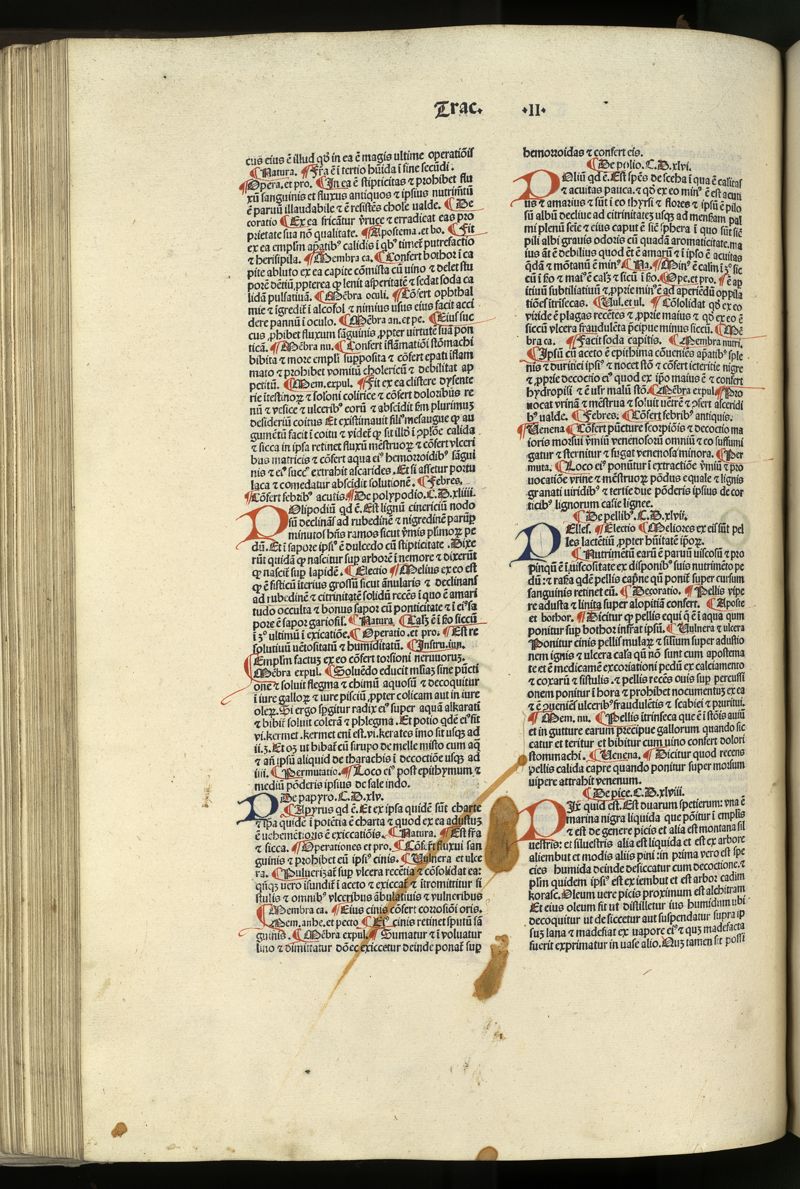 Trac. ·II·
cus eius ē illud qḋ in ea ē magis ultime operatiōis
¶Natura. ¶Fr̄a ē ī tertio hūida ī fine secūdi.
¶Opera. et pro. ¶In ea ē stipticitas ⁊ prohibet flu
xū sanguinis et fluxus antiquos ⁊ ipsius nutrimētū
ē paruū illaudabile ⁊ ē resistēs chole ualde. ¶De
coratio ¶Ex ea fricātur v̄ruce ⁊ erradicat eas pro
prietate sua nō qualitate. ¶Apostema. et bo. ¶Fit
ex ea emplm̄ ap̄atibꝰ calidis ī qbꝰ timeť putrefactio
⁊ herisipila. ¶Membra ca. ¶Confert bothor ī ca
pite abluto ex ea capite cōmista cū uino ⁊ delet stu
porē dētiū, ꝓpterea qꝫ lenit asperitatē ⁊ sedat soda ca
lidā pulsatiuā. ¶Mēbra oculi. ¶Cōfert ophthal
mie ⁊ īgredit̄ ī alcofol ⁊ nimius usus eius facit acci
dere pannū ī oculo. ¶Mēbra an. et pe. ¶Eius suc
cus ꝓhibet fluxum sanguinis, ꝓpter virtutē suā pon
ticā. ¶Mēbra nu. ¶Confert inflāmatiōi stōmachi
bibita ⁊ more emplī supposita ⁊ cōfert epati īflam
mato ⁊ prohibet vomitū cholericū ⁊ debilitat ap
petitū. ¶Mem. expul. ¶Fit ex ea clistere dysente
rie ītestinoꝝ ⁊ solsoni colirice ⁊ cōfert doloribus re
nū ⁊ vesice ⁊ ulceribꝰ eorū ⁊ abscidit sm̄ plurimuꝫ
desideriū coitus Et existimauit filiꝰ mesaugue qꝫ au
gumētū facit ī coitu
⁊ sicca in ipsa retinet fluxū mēstruoꝝ ⁊ cōfert vlceri
bus matricis ⁊ cōfert aqua eiꝰ hemorroidibꝰ sāgui
nis ⁊ eiꝰ succꝰ extrahit ascarides. Et si assetur portu
laca ⁊ comedatur abscidit solutionē. ¶Febres.
¶Cōfert febribꝰ acutis ¶De polypodio. C.D.xliiii.
POlipodiū qd ē. Est lignū cinericiū nodo
sū declināſ ad rubedinē ⁊ nigredinē parūꝑ
minutos hn̄s ramos sicut v̄mis plimoꝝ pe
dū. Et ī sapore ipsiꝰ ē dulcedo cū stipticitate. Dixe
rūt quidā qꝫ nascitur sup arborē ī nemore ⁊ dixerūt
qꝫ nascit̄ sup lapidē. ¶Electio ¶Melius ex eo est
qꝫ ē fisticū iterius grossū sicut ānularis ⁊ declinans
ad rubedinē ⁊ citrinitatē solidū recēs ī quo ē amari
tudo occulta ⁊ bonus sapor cū ponticitate ⁊ ī eiꝰ sa
pore ē sapor gariofil. ¶Natura. Caľ ē ī ſo siccū
ī ʒº ultimū ī exicatiōe. ¶Operatio. et pro. ¶Est re
solutiuū uētositatū ⁊ humiditatū. ¶Instru. iun.
Emplm̄ factuꝫ ex eo cōfert torsioni neruuoruꝫ.
¶Mēbra expul. ¶Soluēdo educit mſiaꝫ sine pūcti
one ⁊ soluit flegma ⁊ chimū aquosū ⁊ decoquitur
ī iure galloꝝ ⁊ iure pisciū, ꝓpter colicam aut in iure
oleꝝ. Si ergo spgitur radix eiꝰ super aquā alkarati
⁊ bibit̄ soluit colerā ⁊ phlegma. Et potio qdē eiꝰ fit
.vi. kermet. kermet en̄i est. vi. kerates imo fit usqꝫ ad
ii. ʒ. Et oꝫ ut bibat̄ cū sirupo de melle misto cum aq̄
⁊ an̄ ipsū aliquid de tharachis ī decoctiōe usqꝫ ad
iiii. ¶Permutatio. ¶Loco eiꝰ post epithymum ⁊
mediū pōderis ipsius de sale indo.
¶De papyro. C.D.xlv.
PApyrus qd ē. Et ex ipsa quidē sūt charte
⁊ ip̄a quidē ī potētia ē charta ⁊ quod ex ea adustuꝫ
ē uehemētioris ē exiccatiōis. ¶Natura. ¶Est fr̄a
⁊ sicca. ¶Operationes et pro. ¶Cōfert fluxui san
guinis ⁊ prohibet eū ipsiꝰ cinis. ¶Vulnera et ulce
ra. ¶Puluerizat̄ sup vlcera recētia ⁊ cōsolidat ea:
stulis ⁊ omnibꝰ vlceribus ābulatiuis ⁊ vulneribus
¶Membra ca. ¶Eius cinis cōfert corrosiōi oris.
¶Mem. anhe. et pecto ¶Eiꝰ cinis retinet sputū sā
guinis. ¶Mēbra expul. ¶Sumatur ⁊ ī voluatur
lino ⁊ dimittatur dōec exiccetur deinde ponat̄ sup
hemorroidas ⁊ confert eis.
¶De polio. C.D.xlvi.
POliū qd ē. Est spēs de scecha ī qua ē caliditas
⁊ acuitas pauca. ⁊ qḋ ex eo minꝰ ē est acuti
us ⁊ amarius ⁊ sūt ī eo thyrsi ⁊ flores ⁊ ipsū ē pilo
sū albū decliue ad citrinitateꝫ usqꝫ ad mensam pal
mi plenū seīe ⁊ eius caput ē sic̄ sphera ī quo sūt sic̄
pili albi grauis odoris cū quadā aromaticitate. ma
ius āt ē debilius quod ēt ē amarū ⁊ ī ipso ē acuitas
q̄dā ⁊ mōtanū ē minꝰ ¶Na. ¶Minꝰ ē caľm ī ʒº sic
cū ī ſo ⁊ maiꝰ ē caľ ⁊ siccū ī ſo. ¶Ope. et pro. ¶ē ap̄
itiuū subtiliatiuū ⁊ ꝓprie minꝰ ē ad aperiēdū oppila
tiōes ītrīsecas. ¶Vul. et ul. ¶Cōsolidat qḋ ex eo ē
viride ē plagas recētes ⁊ ꝓprie maius ⁊ qḋ ex eo ē
siccū vlcera fraudulēta p̄cipue minus siccū. ¶Mē
bra ca. ¶Facit soda capitis. ¶Membra nutri.
¶Ipsū cū aceto ē epithima cōueniēs ap̄atibꝰ sple
nis ⁊ duriciei ipsiꝰ ⁊ nocet stō ⁊ cōfert icteritie nigre
⁊ ꝓprie decoctio eiꝰ quod ex ip̄o maius ē ⁊ confert
hydropisi ⁊ ē ulr̄ malū stō. ¶Mēbra expul ¶Pro
uocat vrinā ⁊ mēstrua ⁊ soluit uētrē ⁊ ꝯfert ascaridi
bꝰ ualde. ¶Febres. ¶Cōfert febribꝰ antiquis.
¶Venena ¶Cōfert pūcture scorpiōis ⁊ decoctio ma
ioris morsui v̄miū venenosorū omniū ⁊ eo suffumi
gatur ⁊ sternitur ⁊ fugat venenosa minora. ¶Per
muta. ¶Loco eiꝰ ponūtur ī extractiōe v̄miū ⁊ pro
uocatiōe vrine ⁊ mēstruoꝝ pōdus equale ⁊ lignis
granati uiridibꝰ ⁊ tertie due pōderis ipsius de cor
ticibꝰ lignorum casie lignee.
¶De pellibꝰ. C.D.xlvii.
PElles. ¶Electio ¶Meliores ex eis sūt pel
les lactētiū, ꝓpter hūitatē ip̄oꝝ.
¶Nutrimētū earū ē paruū uiscosū ⁊ pro
pinquū ē ī uiscositate ex disponibꝰ suis nutrimēto pe
dū: ⁊ rasa qdē pellis cap̄ne qn̄ ponit̄ super cursum
sanguinis retinet eū. ¶Decoratio. ¶Pellis vipe
re adusta ⁊ linita super alopitiā confert. ¶Aposte
et bothor. ¶Dicitur qꝫ pellis equi q̄ ē ī aqua qum
ponitur sup bothor infrat̄ ipsū. ¶Vulnera ⁊ ulcera
Ponitur cinis pellis mulaꝝ ⁊ siliuꝫ super adustio
nem ignis ⁊ ulcera calia qn̄ nō sunt cum apostema
te et ē medicamē excoriationi pedū ex calciamento
⁊ coxarū ⁊ fistulis. ⁊ pellis recēs ouis sup percussi
onem ponitur ī hora ⁊ prohibet nocumentuꝫ ex ea
⁊ ē ꝯueniēs ulceribꝰ fraudulētis ⁊ scabiei ⁊ pruritui.
¶Mem. nu. ¶Pellis itrinseca que ē ī stōis auiū
et in gutture earum precipue gallorum quando sic
catur et teritur et bibitur cum uino confert dolori
stommachi. ¶Venena. ¶Dicitur quod recens
pellis calida capre quando ponitur super morsum
uipere attrahit venenum.
¶De pice. C.D.xlviii.
PIx quid est. Est duarum spetierum: vna ē
marina nigra liquida que pōitur ī emplis
⁊ est de genere picis et alia est montana sil
uestris: et siluestris alia est liquida et est ex arbore
aliembut et modis aliis pini: in prima vero est spe
cies humida deinde desiccatur cum decoctione. ⁊
plm̄ quidem ipsiꝰ est ex iembut et est arbor cadim
korasc. Oleum uere picis proximum est alchitram
Et eius oleum fit ut distilletur ius humidum ubi
decoquitur ut desiccetur aut suspendatur supra ip
suꝫ lana ⁊ madefiat ex uapore eiꝰ ⁊ quꝫ madefacta
fuerit exprimatur in uase alio. Quꝫ tamen fit possi